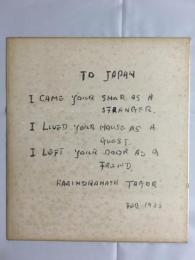 TO JAPAN
I CAME YOUR SHOR AS A
STRANGER.
I LIVED YOUR HOUSE AS A
GUEST.
I LEFT YOUR DOOR AS A
FRIEND.
RABINDRANATH TAGOR
FEB. 1933